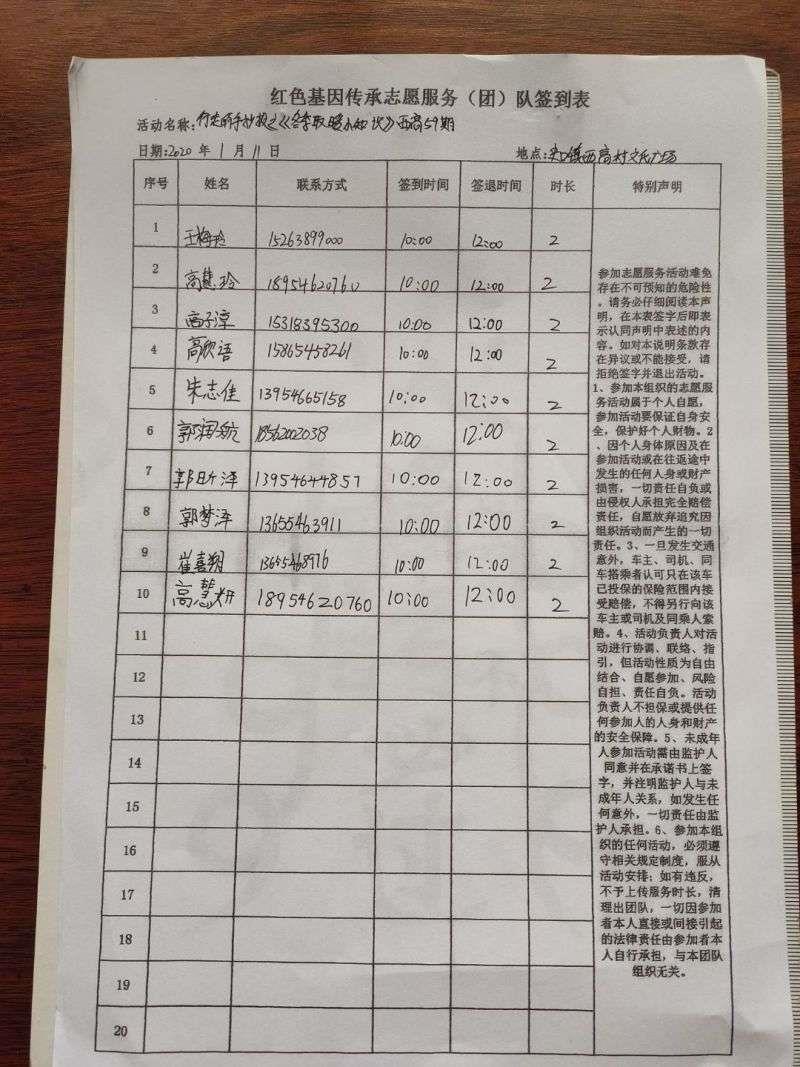 红色基因传承志愿服务（团）队签到表
活动名称：行走的手抄报之《冬季取暖小知识》西高59期
日期：2020 年 1 月 11 日 地点：西高村文化广场
序号 姓名 联系方式 签到时间 签退时间 时长 特别声明
1 王梅玲 15263899000 10:00 12:00 2
2 高慧玲 18954620760 10:00 12:00 2
3 高子淳 15318395300 10:00 12:00 2
4 高欣语 15865458261 10:00 12:00 2
5 朱志佳 13954665158 10:00 12:00 2
6 郭润航 18562002038 10:00 12:00 2
7 郭昕泽 13954644857 10:00 12:00 2
8 郭梦泽 13655463911 10:00 12:00 2
9 崔喜翔 13655468976 10:00 12:00 2
10 高慧妍 18954620760 10:00 12:00 2
11
12
13
14
15
16
17
18
19
20
参加志愿服务活动难免
存在不可预知的危险性
。请务必仔细阅读本声
明，在本表签字后即表
示认同声明中表述的内
容。如对本说明条款存
在异议或不能接受，请
拒绝签字并退出活动。
1、参加本组织的志愿服
务活动属于个人自愿，
参加活动要保证自身安
全，保护好个人财物。2
、因个人身体原因及在
参加活动或在往返途中
发生的任何人身或财产
损害，一切责任自负或
由侵权人承担完全赔偿
责任，自愿放弃追究因
组织活动而产生的一切
责任。3、一旦发生交通
意外，车主、司机、同
车搭乘者认可只在该车
已投保的保险范围内接
受赔偿，不得另行向该
车主或司机及同乘人索
赔。4、活动负责人对活
动进行协调、联络、指
引，但活动性质为自由
结合、自愿参加、风险
自担、责任自负。活动
负责人不担保或提供任
何参加人的人身和财产
的安全保障。5、未成年
人参加活动需由监护人
同意并在承诺书上签
字，并注明监护人与未
成年人关系，如发生任
何意外，一切责任由监
护人承担。6、参加本组
织的任何活动，必须遵
守相关规定制度，服从
活动安排；如有违反，
不予上传服务时长，清
理出团队，一切因参加
者本人直接或间接引起
的法律责任由参加者本
人自行承担，与本团队
组织无关。